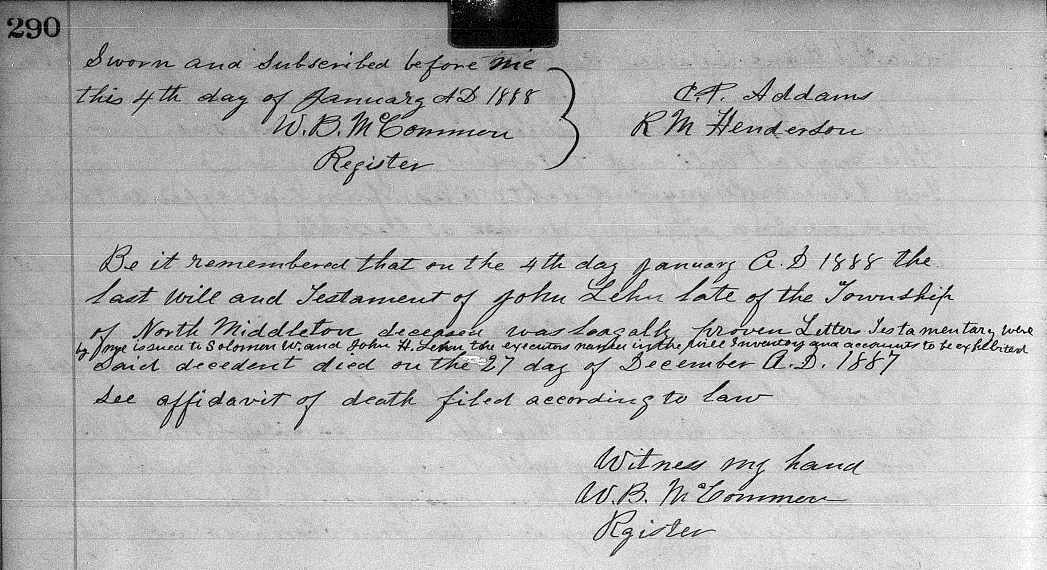 290
Sworn and Subscribed before me
this 4th day of January AD 1888
W. B. McCommon
Register
C. P. Addams
R M Henderson
Be it remembered that on the 4th day January A.D 1888 the
last Will and Testament of John Lehn late of the Township
of North Middleton deceased was leagally proven Letters Testamentary were
by me issued to Solomon W. and John H. Lehn the executors named in the will Inventory and accounts to be exhibited
Said decedent died on the 27 day of December A.D. 1887
See affidavit of death filed according to law
Witness my hand
W. B. McCommon
Rgister